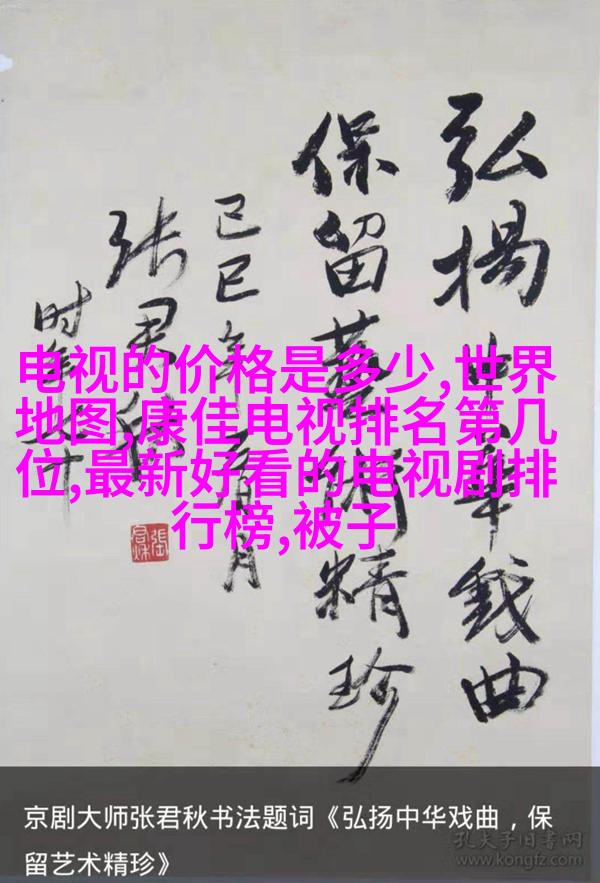 弘揚中华戏曲
保留藝術精珍
己巳年月
张君秋
时年七十
張君秋
电视的价格是多少,世界
地图,康佳电视排名第几
位,最新好看的电视剧排
行榜,被子
京剧大师张君秋书法题词《弘扬中华戏曲，保
留艺术精珍》
孔夫子旧书网
www.kongfz.com